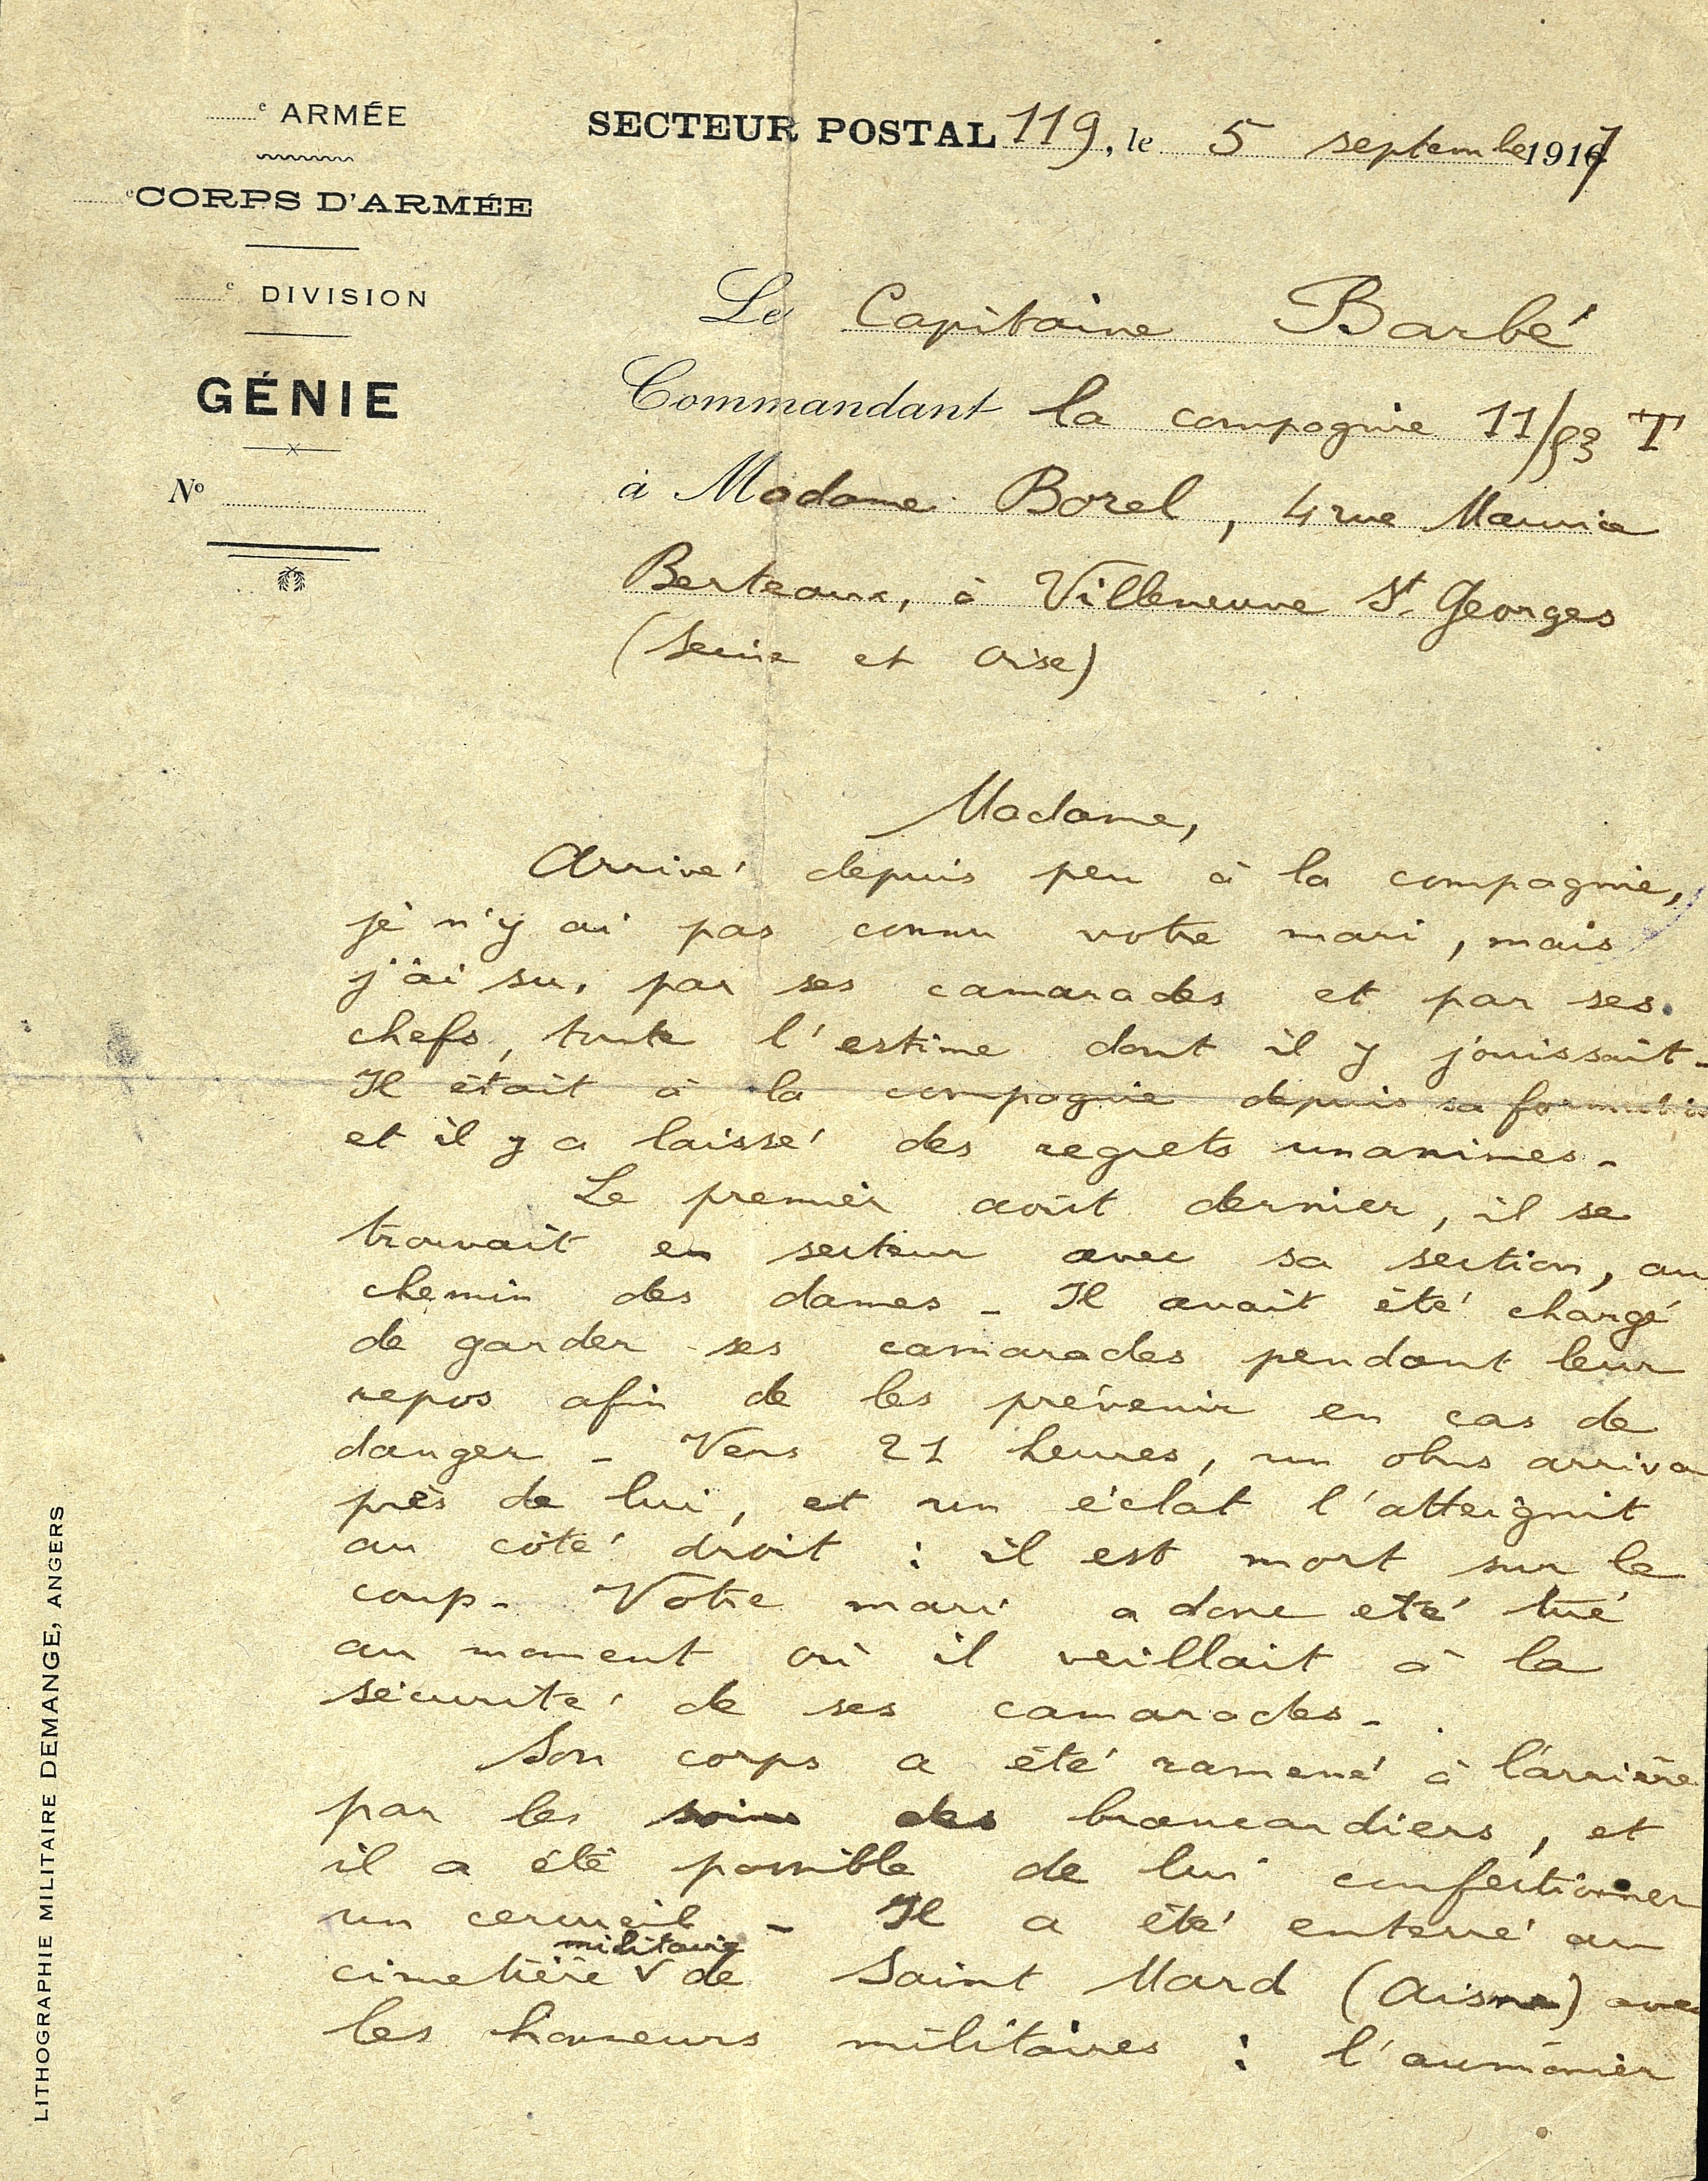 e ARMÉE
e CORPS D'ARMÉE
e DIVISION
GÉNIE
No
SECTEUR POSTAL 119, le 5 septembre 1917
Le Capitaine Barbé
Commandant la compagnie 11/53 T
à Madame Borel, 4 rue Maurice
Berteaux, à Villeneuve St. Georges
(Seine et Oise)
Madame,
Arrivé depuis peu à la compagnie,
je n'y ai pas connu votre mari, mais
j'ai su, par ses camarades et par ses
chefs, toute l'estime dont il y jouissait -
Il était à la compagnie depuis sa formation
et il y a laissé des regrets unanimes -
Le premier août dernier, il se
trouvait en secteur avec sa section, au
chemin des dames - Il avait été chargé
de garder ses camarades pendant leur
repos afin de les prévenir en cas de
danger - Vers 21 heures, un obus arriva
près de lui, et un éclat l'atteignit
au côté droit : il est mort sur le
coup - Votre mari a donc été tué
au moment où il veillait à la
sécurité de ses camarades -
Son corps a été ramené à l'arrière
par les soins des brancardiers, et
il a été possible de lui confectionner
un cercueil - Il a été enterré au
cimetière militaire de Saint Mard (Aisne) avec
les honneurs militaires : l'aumônier
LITHOGRAPHIE MILITAIRE DEMANGE, ANGERS